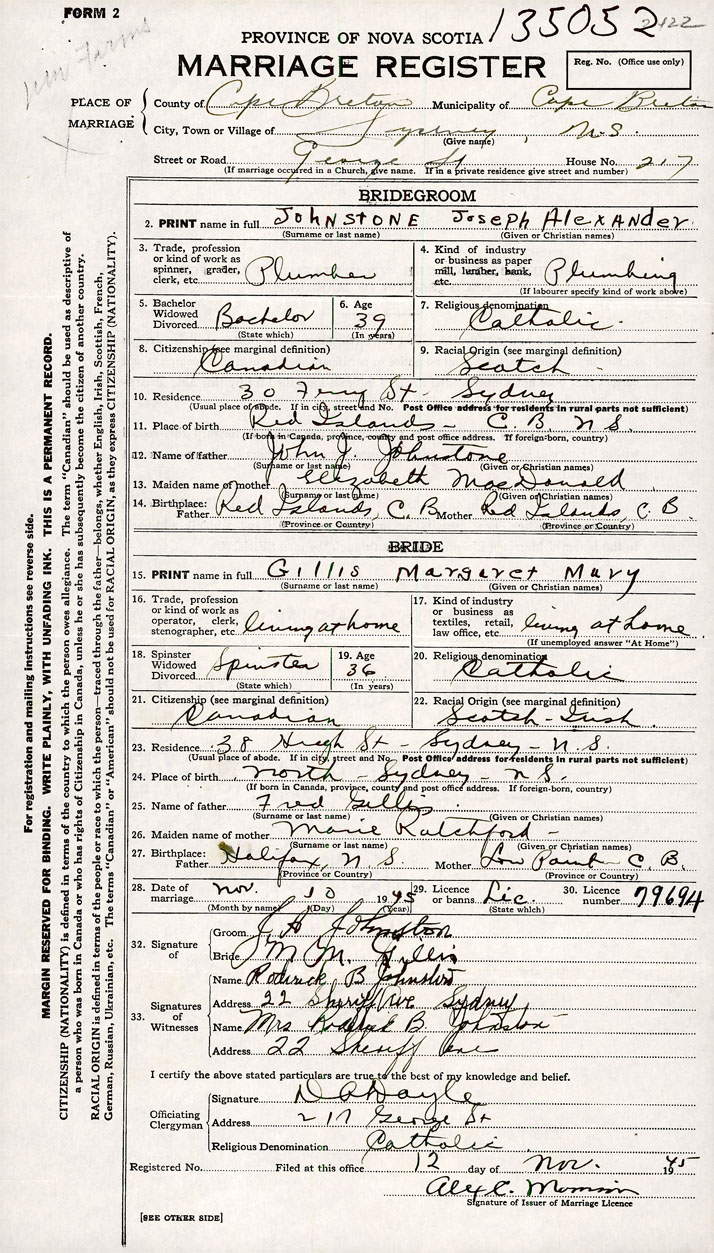 FORM 2
135052
2422
PROVINCE OF NOVA SCOTIA
MARRIAGE REGISTER
Reg. No. (Office use only)
PLACE OF MARRIAGE
County of Cape Breton Municipality of Cape Breton
City, Town or Village of Sydney, N.S.
(Give name)
Street or Road George St House No. 217
(If marriage occurred in a Church, give name. If in a private residence give street and number)
BRIDEGROOM
2. PRINT name in full JOHNSTONE Joseph Alexander
(Surname or last name) (Given or Christian names)
3. Trade, profession or kind of work as spinner, grader, clerk, etc. Plumber
4. Kind of industry or business as paper mill, lumber, bank, etc. Plumbing
(If labourer specify kind of work above)
5. Bachelor Widowed Divorced Bachelor
(State which)
6. Age 39
(In years)
7. Religious denomination Catholic
8. Citizenship (see marginal definition) Canadian
9. Racial Origin (see marginal definition) Scotch
10. Residence 30 Ferry St - Sydney
(Usual place of abode. If in city, street and No. Post Office address for residents in rural parts not sufficient)
11. Place of birth Red Islands - C.B. N.S.
(If born in Canada, province, county and post office address. If foreign-born, country)
12. Name of father John J. Johnstone
(Surname or last name) (Given or Christian names)
13. Maiden name of mother Elizabeth MacDonald
(Surname or last name) (Given or Christian names)
14. Birthplace: Father Red Islands, C.B Mother Red Islands, C.B
(Province or Country) (Province or Country)
BRIDE
15. PRINT name in full Gillis Margaret Mary
(Surname or last name) (Given or Christian names)
16. Trade, profession or kind of work as operator, clerk, stenographer, etc. living at home
17. Kind of industry or business as textiles, retail, law office, etc. living at home
(If unemployed answer "At Home")
18. Spinster Widowed Divorced Spinster
(State which)
19. Age 36
(In years)
20. Religious denomination Catholic
21. Citizenship (see marginal definition) Canadian
22. Racial Origin (see marginal definition) Scotch-Irish
23. Residence 38 Hugh St - Sydney - N.S.
(Usual place of abode. If in city, street and No. Post Office address for residents in rural parts not sufficient)
24. Place of birth North - Sydney - N.S.
(If born in Canada, province, county and post office address. If foreign-born, country)
25. Name of father Fred Gillis
(Surname or last name) (Given or Christian names)
26. Maiden name of mother Marie Ratchford -
(Surname or last name) (Given or Christian names)
27. Birthplace: Father Halifax, N.S. Mother Low Point C.B.
(Province or Country) (Province or Country)
28. Date of marriage Nov. 10 1945
(Month by name) (Day) (Year)
29. Licence or banns Lic.
(State which)
30. Licence number 79694
32. Signature of
Groom J A Johnston
Bride M M. Gillis
33. Signatures of Witnesses
Name Roderick B Johnston
Address 22 Sheriff Ave Sydney
Name Mrs Roderick B. Johnston
Address 22 Sheriff Ave
I certify the above stated particulars are true to the best of my knowledge and belief.
Officiating Clergyman
Signature
Address 217 George St
Religious Denomination Catholic
Registered No. Filed at this office 12 day of Nov. 1945
Alex C. Morrison
Signature of Issuer of Marriage Licence
[SEE OTHER SIDE]
For registration and mailing instructions see reverse side.
MARGIN RESERVED FOR BINDING. WRITE PLAINLY, WITH UNFADING INK. THIS IS A PERMANENT RECORD.
CITIZENSHIP (NATIONALITY) is defined in terms of the country to which the person owes allegiance. The term "Canadian" should be used as descriptive of
a person who was born in Canada or who has rights of Citizenship in Canada, unless he or she has subsequently become the citizen of another country.
RACIAL ORIGIN is defined in terms of the people or race to which the person—traced through the father—belongs, whether English, Irish, Scottish, French,
German, Russian, Ukrainian, etc. The terms "Canadian" or "American" should not be used for RACIAL ORIGIN, as they express CITIZENSHIP (NATIONALITY).